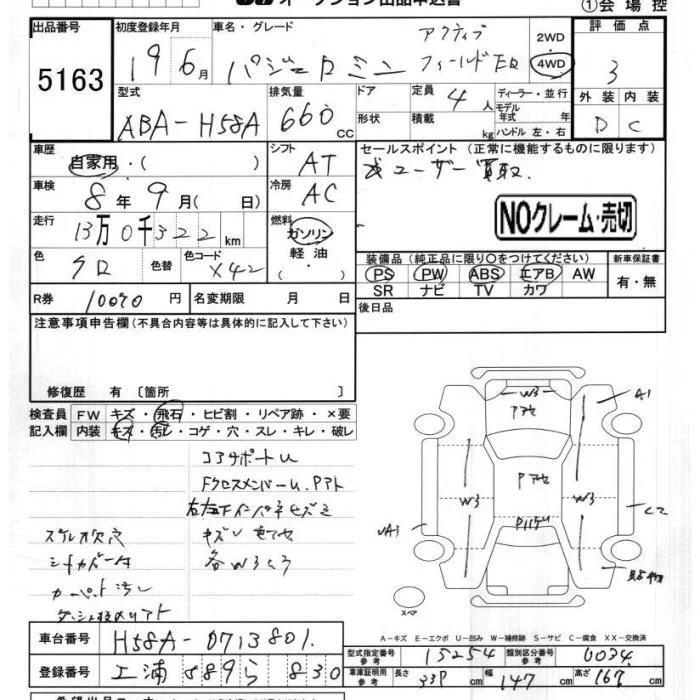 オークション出品申込書
①会場控
出品番号 5163
初度登録年月 19 6月
車名・グレード パジェロミニ アクティブ フィールドEd
2WD 4WD
評価点 3
型式 ABA-H58A
排気量 660 cc
ドア 形状
定員 4人
積載 kg
ディーラー・並行
モデル年式 年
ハンドル 左・右
外装 内装
D C
車歴 自家用・( )
シフト AT
セールスポイント (正常に機能するものに限ります)
ユーザー買取.
車検 8年9月( 日)
冷房 AC
NOクレーム・売切
走行 13万0千322 km
燃料 ガソリン 軽油 ・
色 クロ 色替 色コード X42
装備品 (純正品に限り○をつけてください)
PS PW ABS エアB AW
SR ナビ TV カワ
新車保証書 有・無
R券 10070 円
名変期限 月 日
後日品
注意事項申告欄(不具合内容等は具体的に記入して下さい)
修復歴 有 〔箇所 〕
検査員記入欄
FW キズ・飛石・ヒビ割・リペア跡・×要
内装 キズ・汚レ・コゲ・穴・スレ・キレ・破レ
コアサポートU
FクロスメンバーU. Pアト
各W3くろ
カーペット汚レ
W3 A1
W3 W3
C2
スペア
A－キズ E－エクボ U－凹み W－補修跡 S－サビ C－腐食 XX－交換済
車台番号 H58A-0713801.
型式指定番号 参考 15254
類別区分番号 参考 0034
登録番号 土浦 589 ら 830
車庫証明用 参考 長さ 339 cm 幅 147 cm 高さ 167 cm